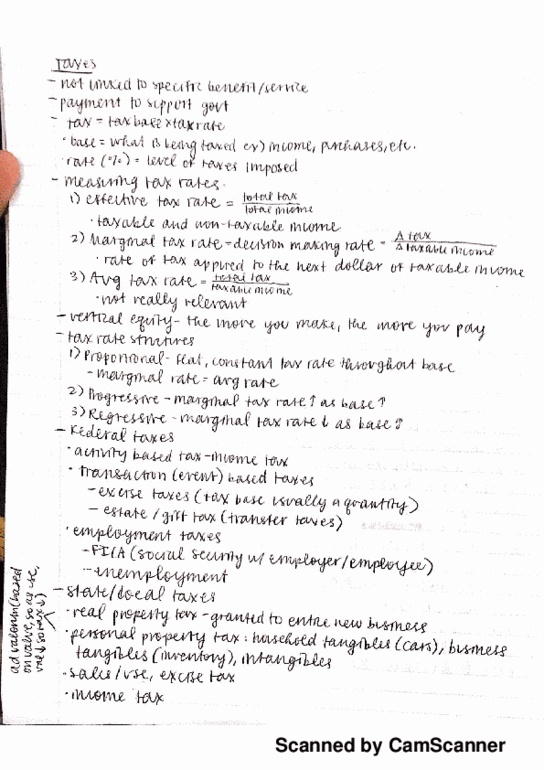 Taxes
- not linked to specific benefit/service
- payment to support govt
- tax = tax base × tax rate
· base = what is being taxed ex) income, purchases, etc.
· rate (%) = level of taxes imposed
- measuring tax rates.
1) effective tax rate = total tax / total income
· taxable and non-taxable income
2) Marginal tax rate = decision making rate = Δ tax / Δ taxable income
· rate of tax applied to the next dollar of taxable income
3) Avg tax rate = total tax / taxable income
· not really relevant
- vertical equity - the more you make, the more you pay
- tax rate structures
1) Proportional - flat, constant tax rate throughout base
- marginal rate = avg rate
2) Progressive - marginal tax rate ↑ as base ↑
3) Regressive - marginal tax rate ↓ as base ↑
- Federal taxes
· activity based tax - income tax
· transaction (event) based taxes
- excise taxes (tax base usually a quantity)
- estate / gift tax (transfer taxes)
· employment taxes
- FICA (social security w/ employer/employee)
- unemployment
- state/local taxes
· real property tax - granted to entire new business
· personal property tax : household tangibles (cars), business
tangibles (inventory), intangibles
· sales/use, excise tax
· income tax
ad valorem (based
on value, so as use,
val ↓ so tax ↓)
Scanned by CamScanner